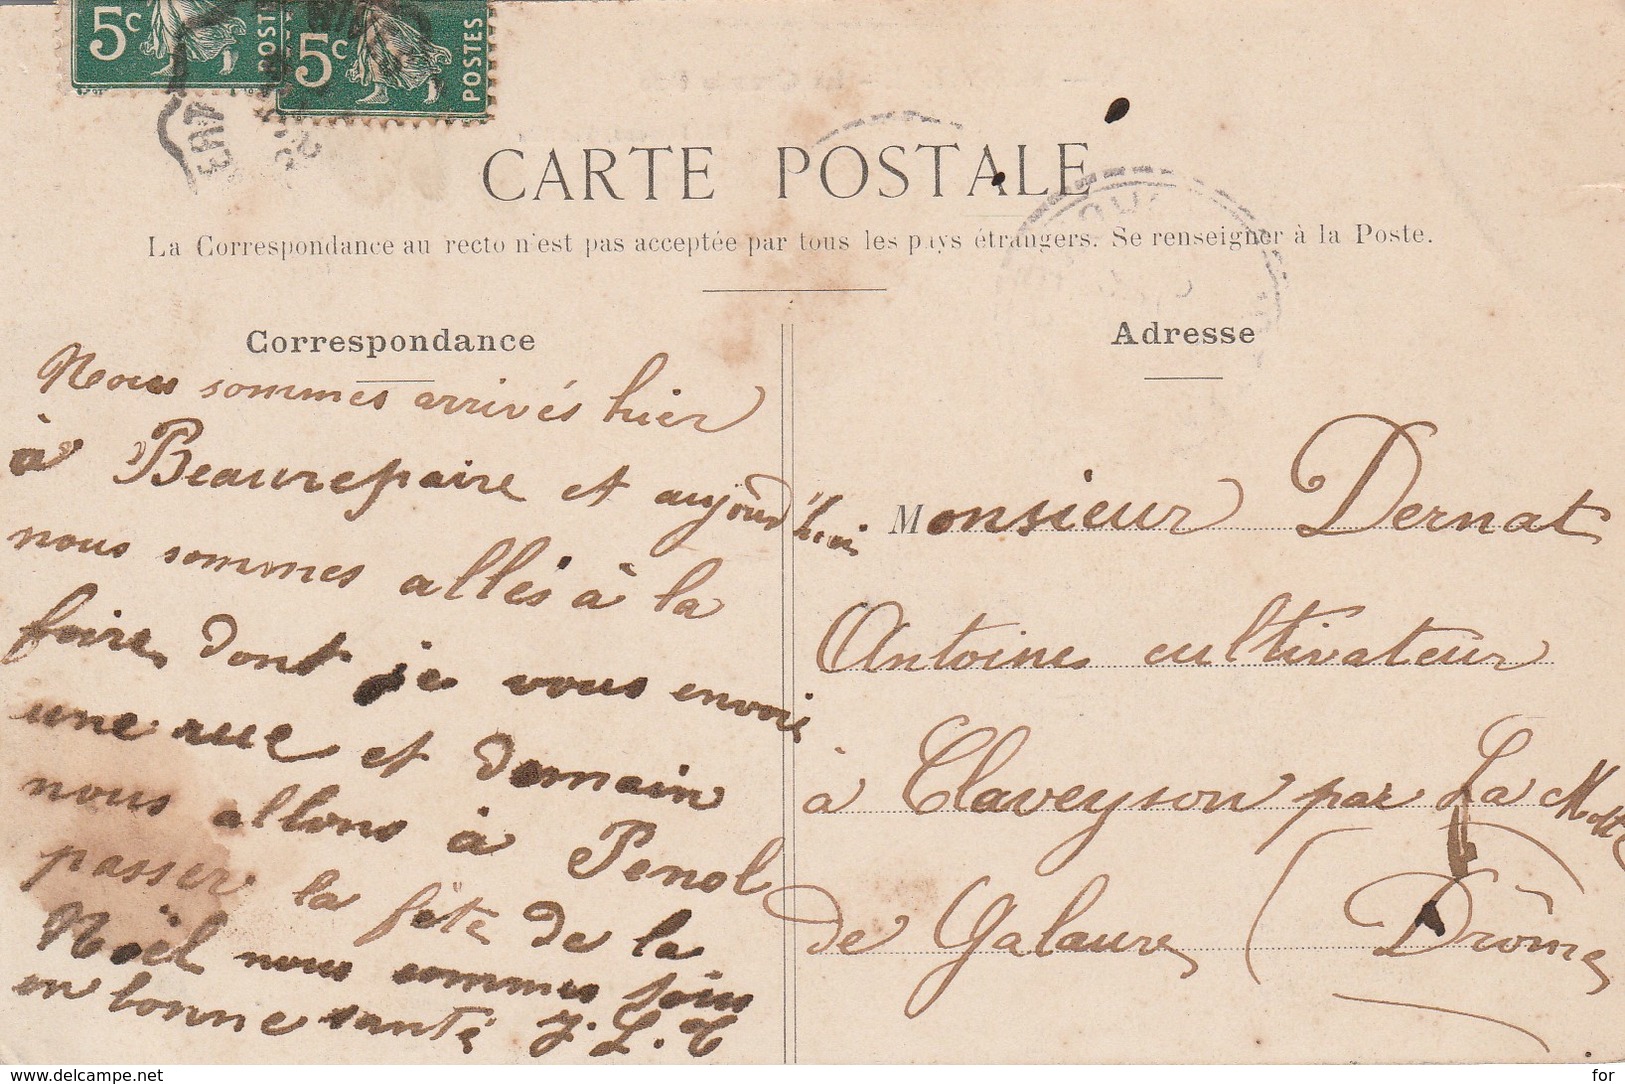 5c POSTES
5c POSTES
CARTE POSTALE
La Correspondance au recto n'est pas acceptée par tous les pays étrangers. Se renseigner à la Poste.
Correspondance
Nous sommes arrivés hier
à Beaurepaire et aujourd'hui
nous sommes allés à la
foire dont je vous envoie
une rue et demain
nous allons à Penol
passer la fête de la
Noël nous sommes tous
en bonne santé J. L. C
Adresse
Monsieur Dernat
Antoine cultivateur
à Claveyson par La Motte
de Galaure (Drôme
www.delcampe.net
for